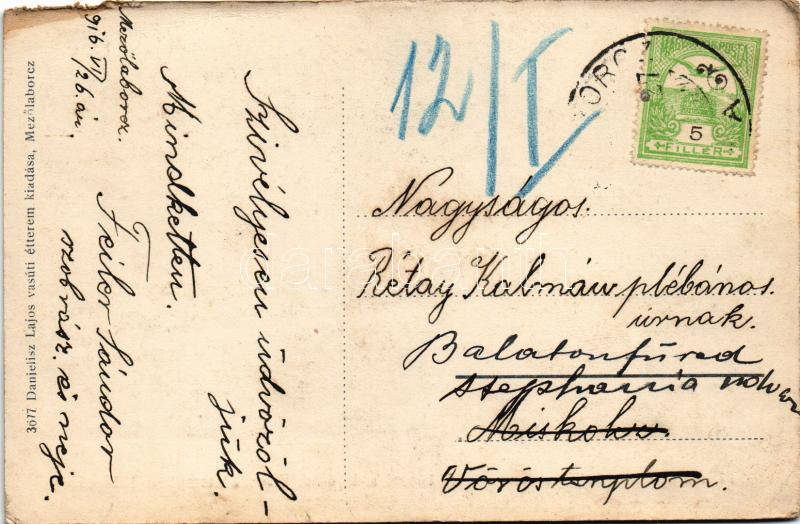 3677 Danielisz Lajos vasúti étterem kiadása, Mezőlaborcz
Mezőlaborcz.
916. VI/26.án.
Szivélyesen üdvözöl-
jük.
Mindketten.
Feiler Sándor
szobrász. és neje.
12/I
MAGYAR KIR. POSTA
5
FILLÉR
Nagyságos.
Rétay Kálmán plébános.
úrnak.
Balatonfüred
Stephania udvar
Miskolcz.
Vöröstemplom.
darabanth